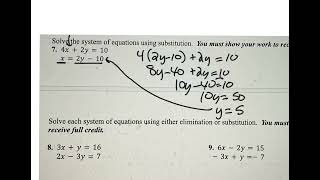 Solve the system of equations using substitution. You must show your work to rec
7. 4x + 2y = 10
x = 2y - 10
4(2y-10) + 2y = 10
8y - 40 + 2y = 10
10y - 40 = 10
10y = 50
y = 5
Solve each system of equations using either elimination or substitution. You must
receive full credit.
8. 3x + y = 16
2x - 3y = 7
9. 6x - 2y = 15
- 3x + y = - 7